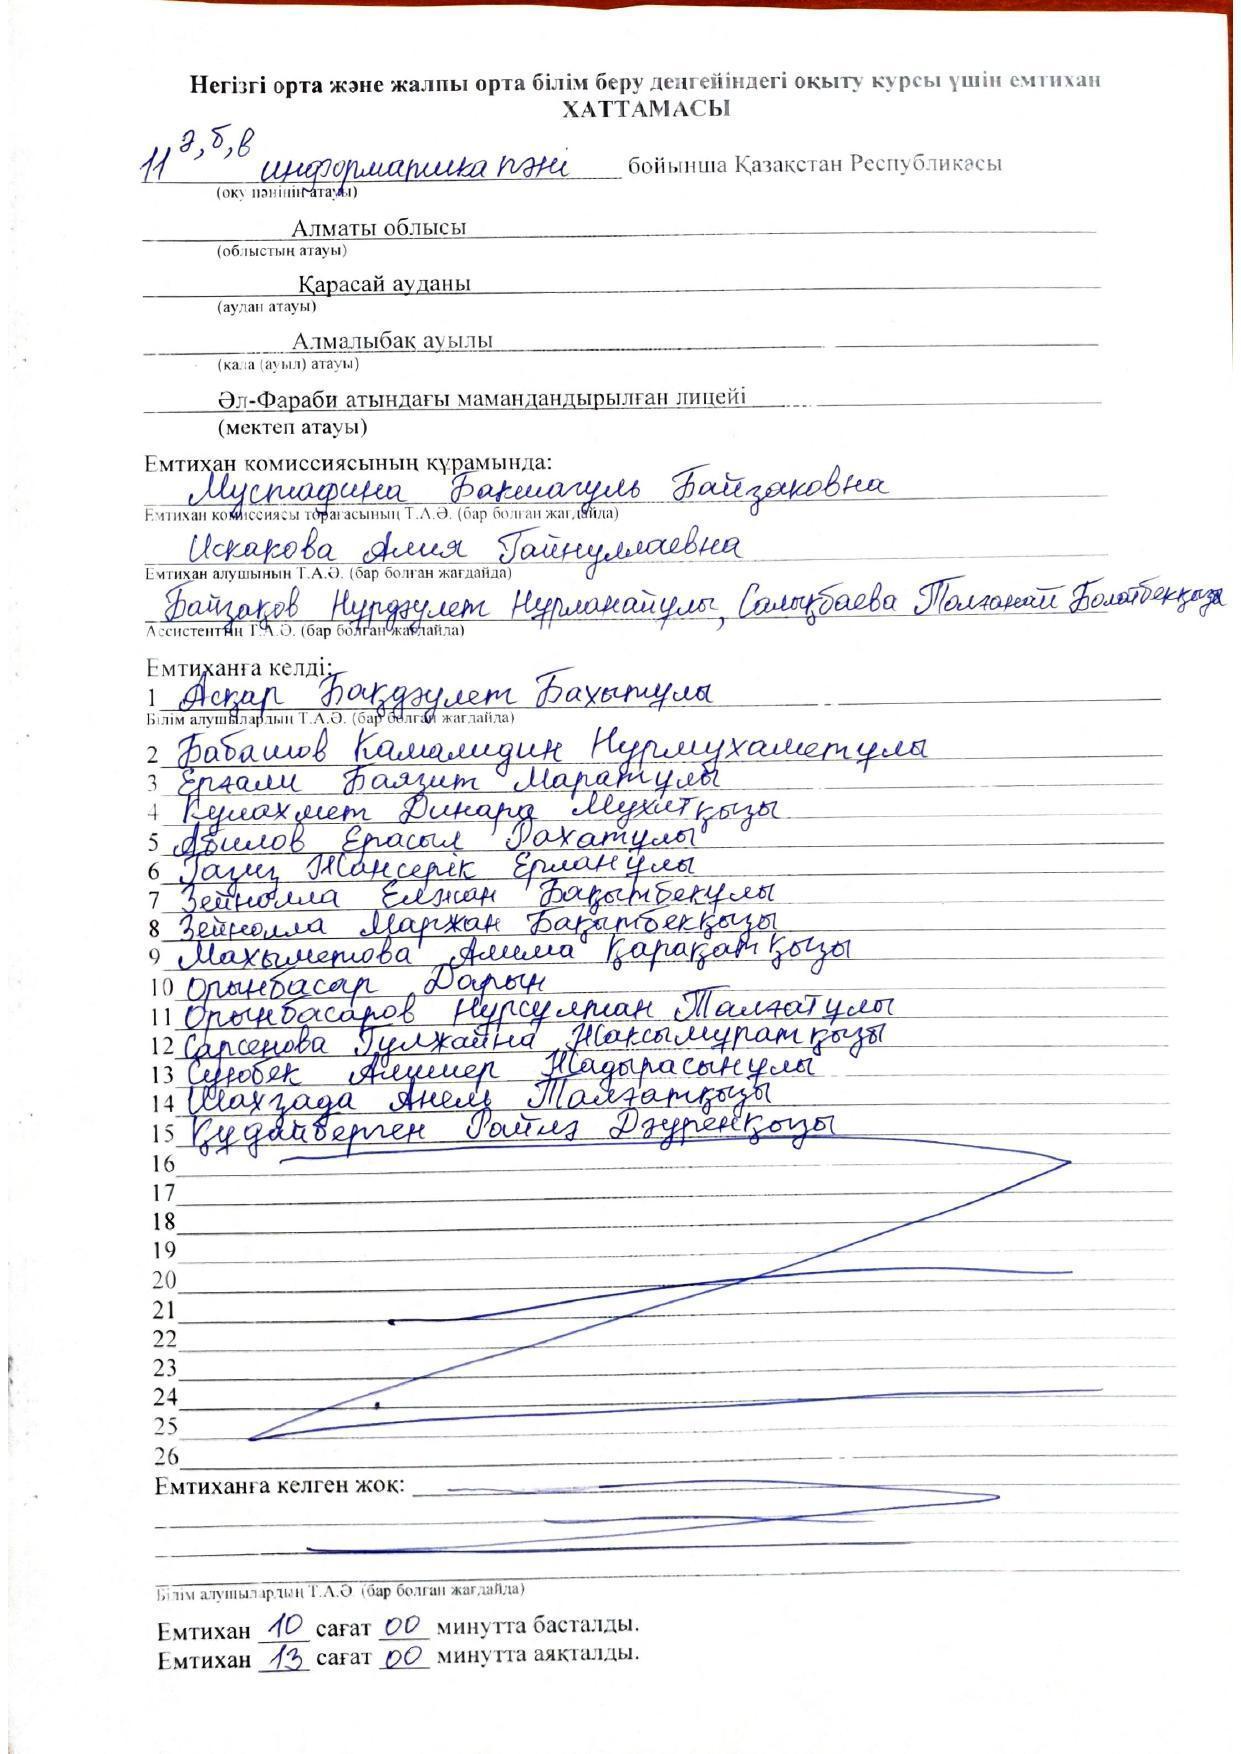 Негізгі орта және жалпы орта білім беру деңгейіндегі оқыту курсы үшін емтихан
ХАТТАМАСЫ
11 ә, б, в информатика пәні бойынша Қазақстан Республикасы
(оқу пәнінің атауы)
Алматы облысы
(облыстың атауы)
Қарасай ауданы
(аудан атауы)
Алмалыбақ ауылы
(қала (ауыл) атауы)
Әл-Фараби атындағы мамандандырылған лицейі
(мектеп атауы)
Емтихан комиссиясының құрамында:
Мустафина Бакшагуль Байзаковна
Емтихан комиссиясы төрағасының Т.А.Ә. (бар болған жағдайда)
Искакова Алия Гайнуллаевна
Емтихан алушының Т.А.Ә. (бар болған жағдайда)
Байзақов Нұрдәулет Нұрланайұлы, Салықбаева Толғанай Болатбекқызы
Ассистентің Т.А.Ә. (бар болған жағдайда)
Емтиханға келді:
1 Асқар Бақдәулет Бахытұлы
Білім алушылардың Т.А.Ә. (бар болған жағдайда)
2 Бабашов Камалидин Нурмухаметұлы
3 Ерғали Баязит Маратұлы
4 Кулахмет Динара Мухитқызы
5 Абилов Ерасыл Рахатұлы
6 Газиз Жансерік Ерланұлы
7 Зейнолла Елжан Бақытбекұлы
8 Зейнолла Маржан Бақытбекқызы
9 Махыметова Алима Қарақатқызы
10 Орынбасар Дарын
11 Орынбасаров Нурсултан Талғатулы
12 Сарсенова Гулжайна Жаксымуратқызы
13 Суюбек Алишер Жадырасынұлы
14 Шахзада Анель Талғатқызы
15 Құдайберген Райлә Дәуренқызы
16
17
18
19
20
21
22
23
24
25
26
Емтиханға келген жоқ:
Білім алушылардың Т.А.Ә (бар болған жағдайда)
Емтихан 10 сағат 00 минутта басталды.
Емтихан 13 сағат 00 минутта аяқталды.